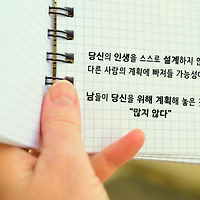 당신의 인생을 스스로 설계하지 않
다른 사람의 계획에 빠져들 가능성이
남들이 당신을 위해 계획해 놓은 것
"많지 않다"